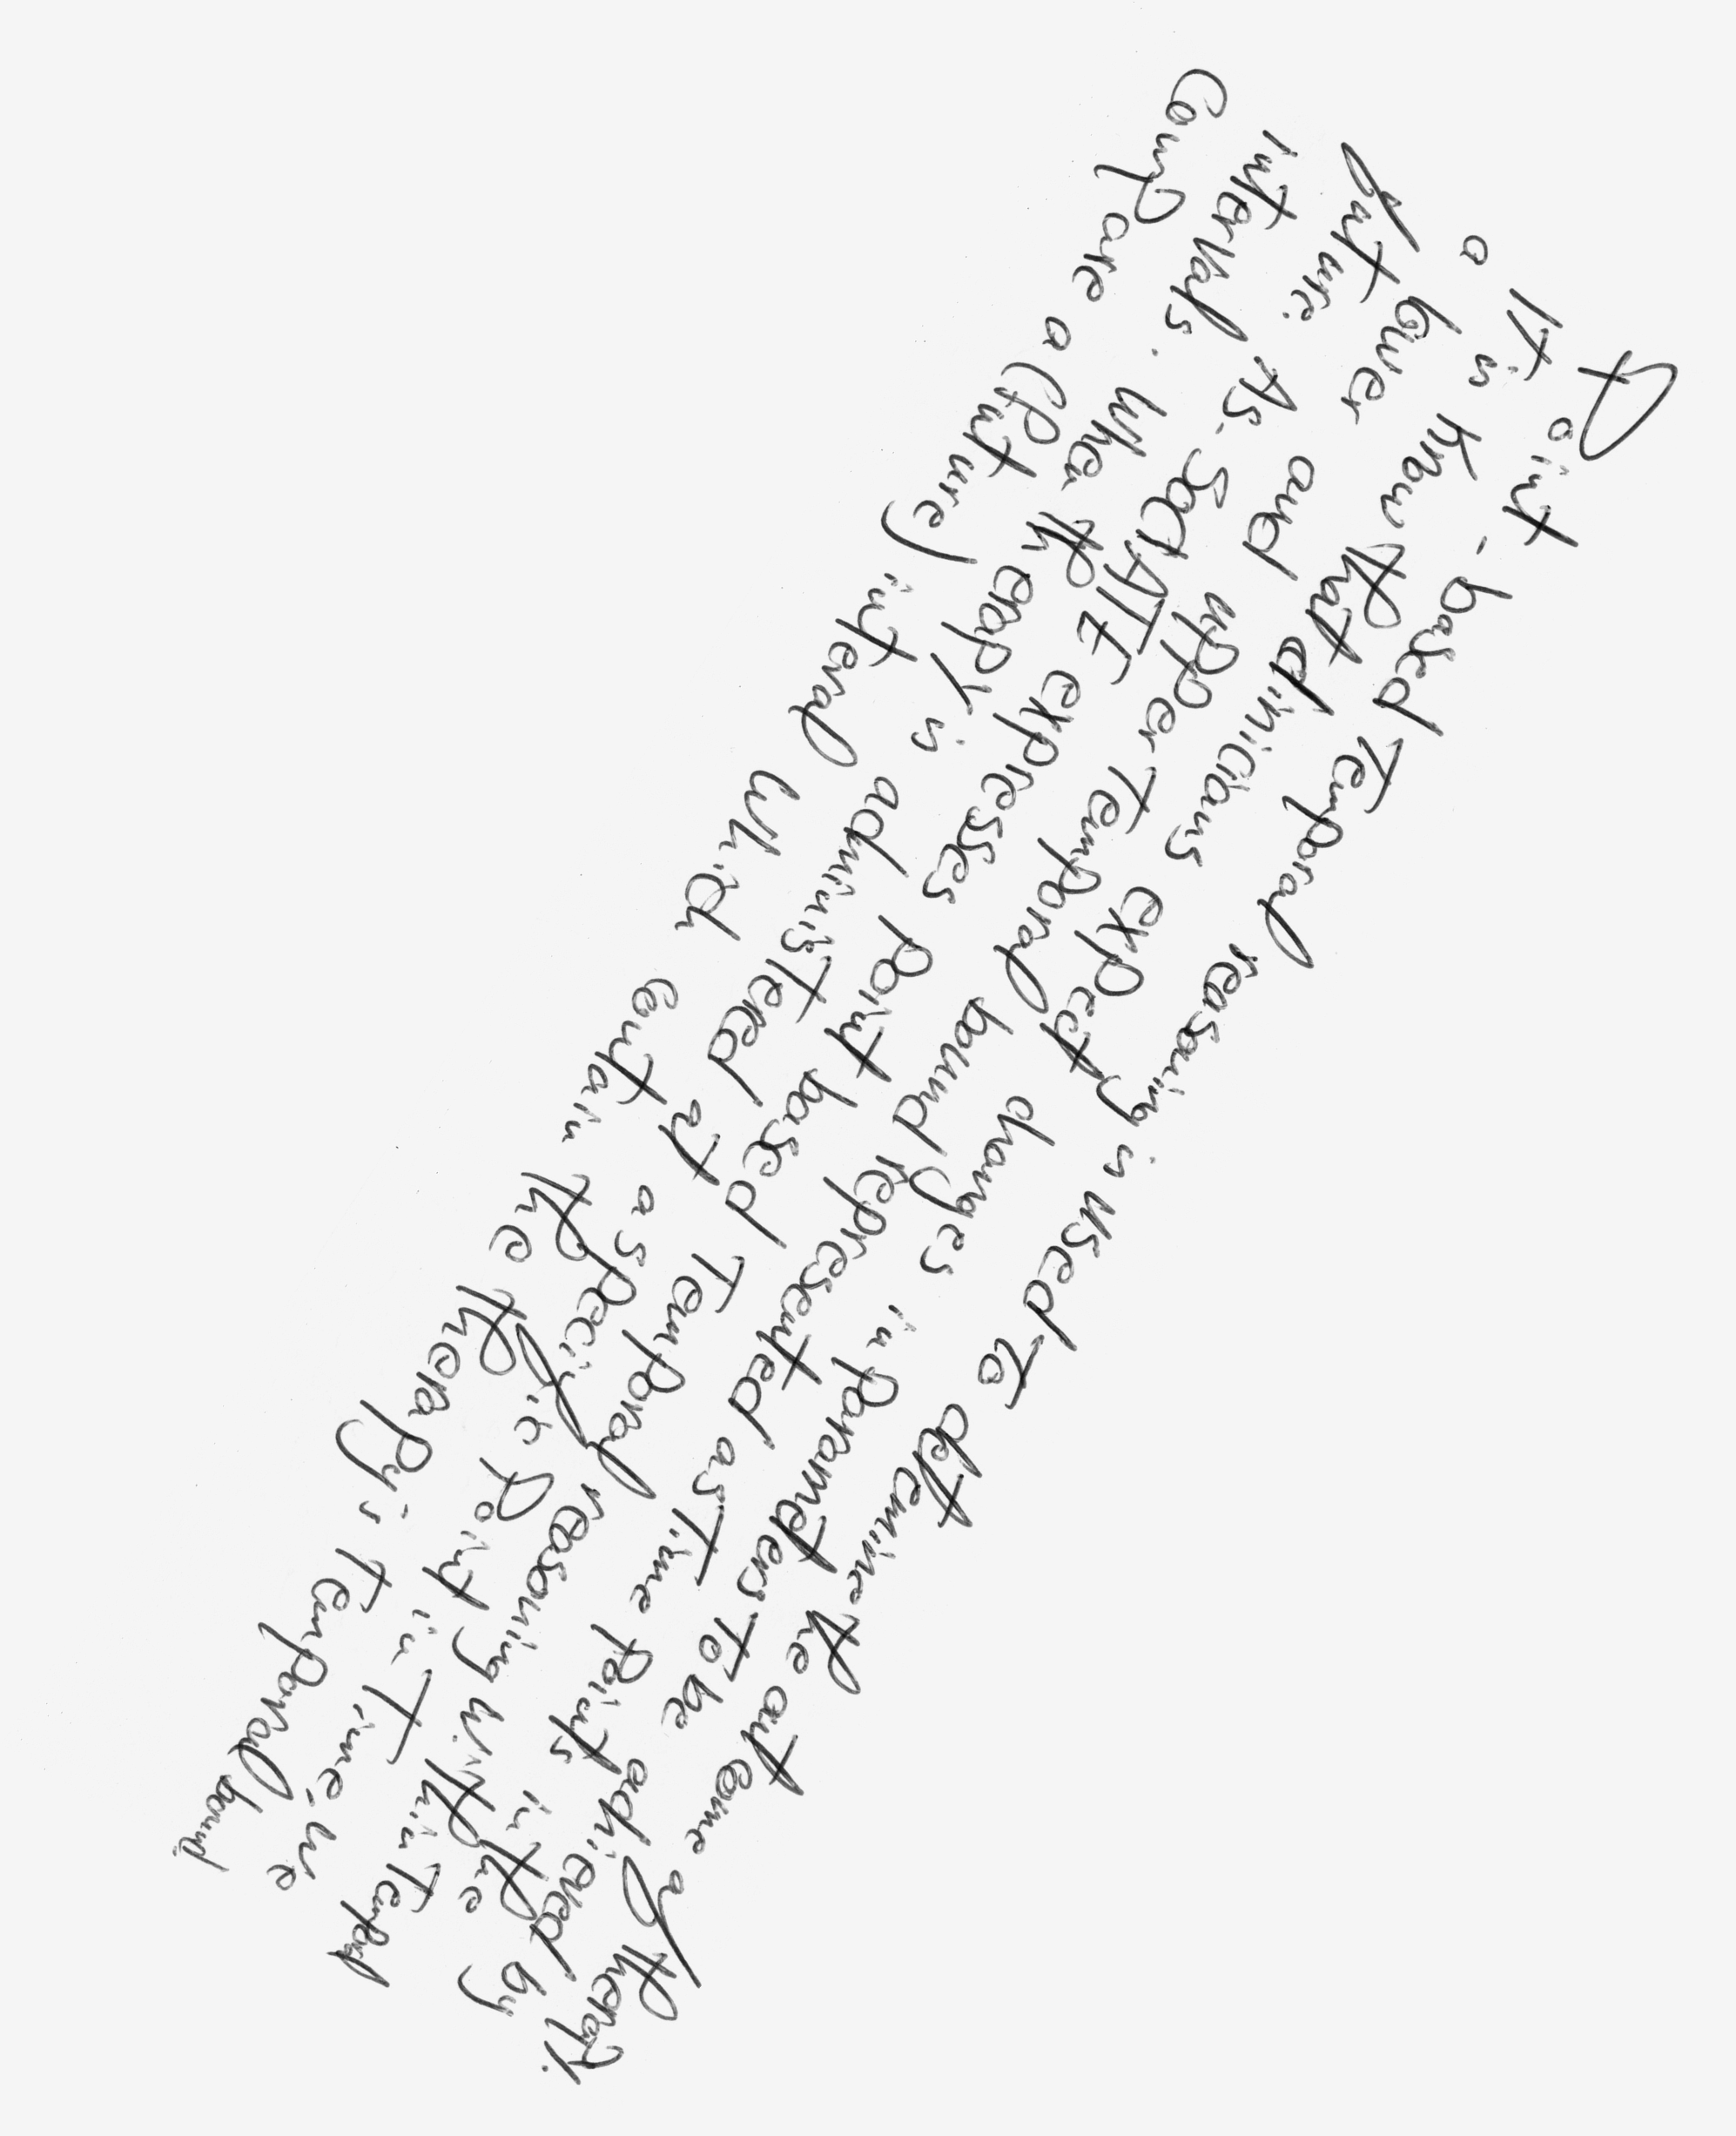 Point-based Temporal reasoning is used to determine the outcome of therapy.
It is know that clinicians expect changes in parameters to be achieved by
a lower and upper Temporal bound represented as Time points in the
future. As. expresses point based Temporal reasoning within Temporal
intervals. When therapy is administered at a specific point in Time, we
compare a (future) interal which contain the therapy's temporal bound